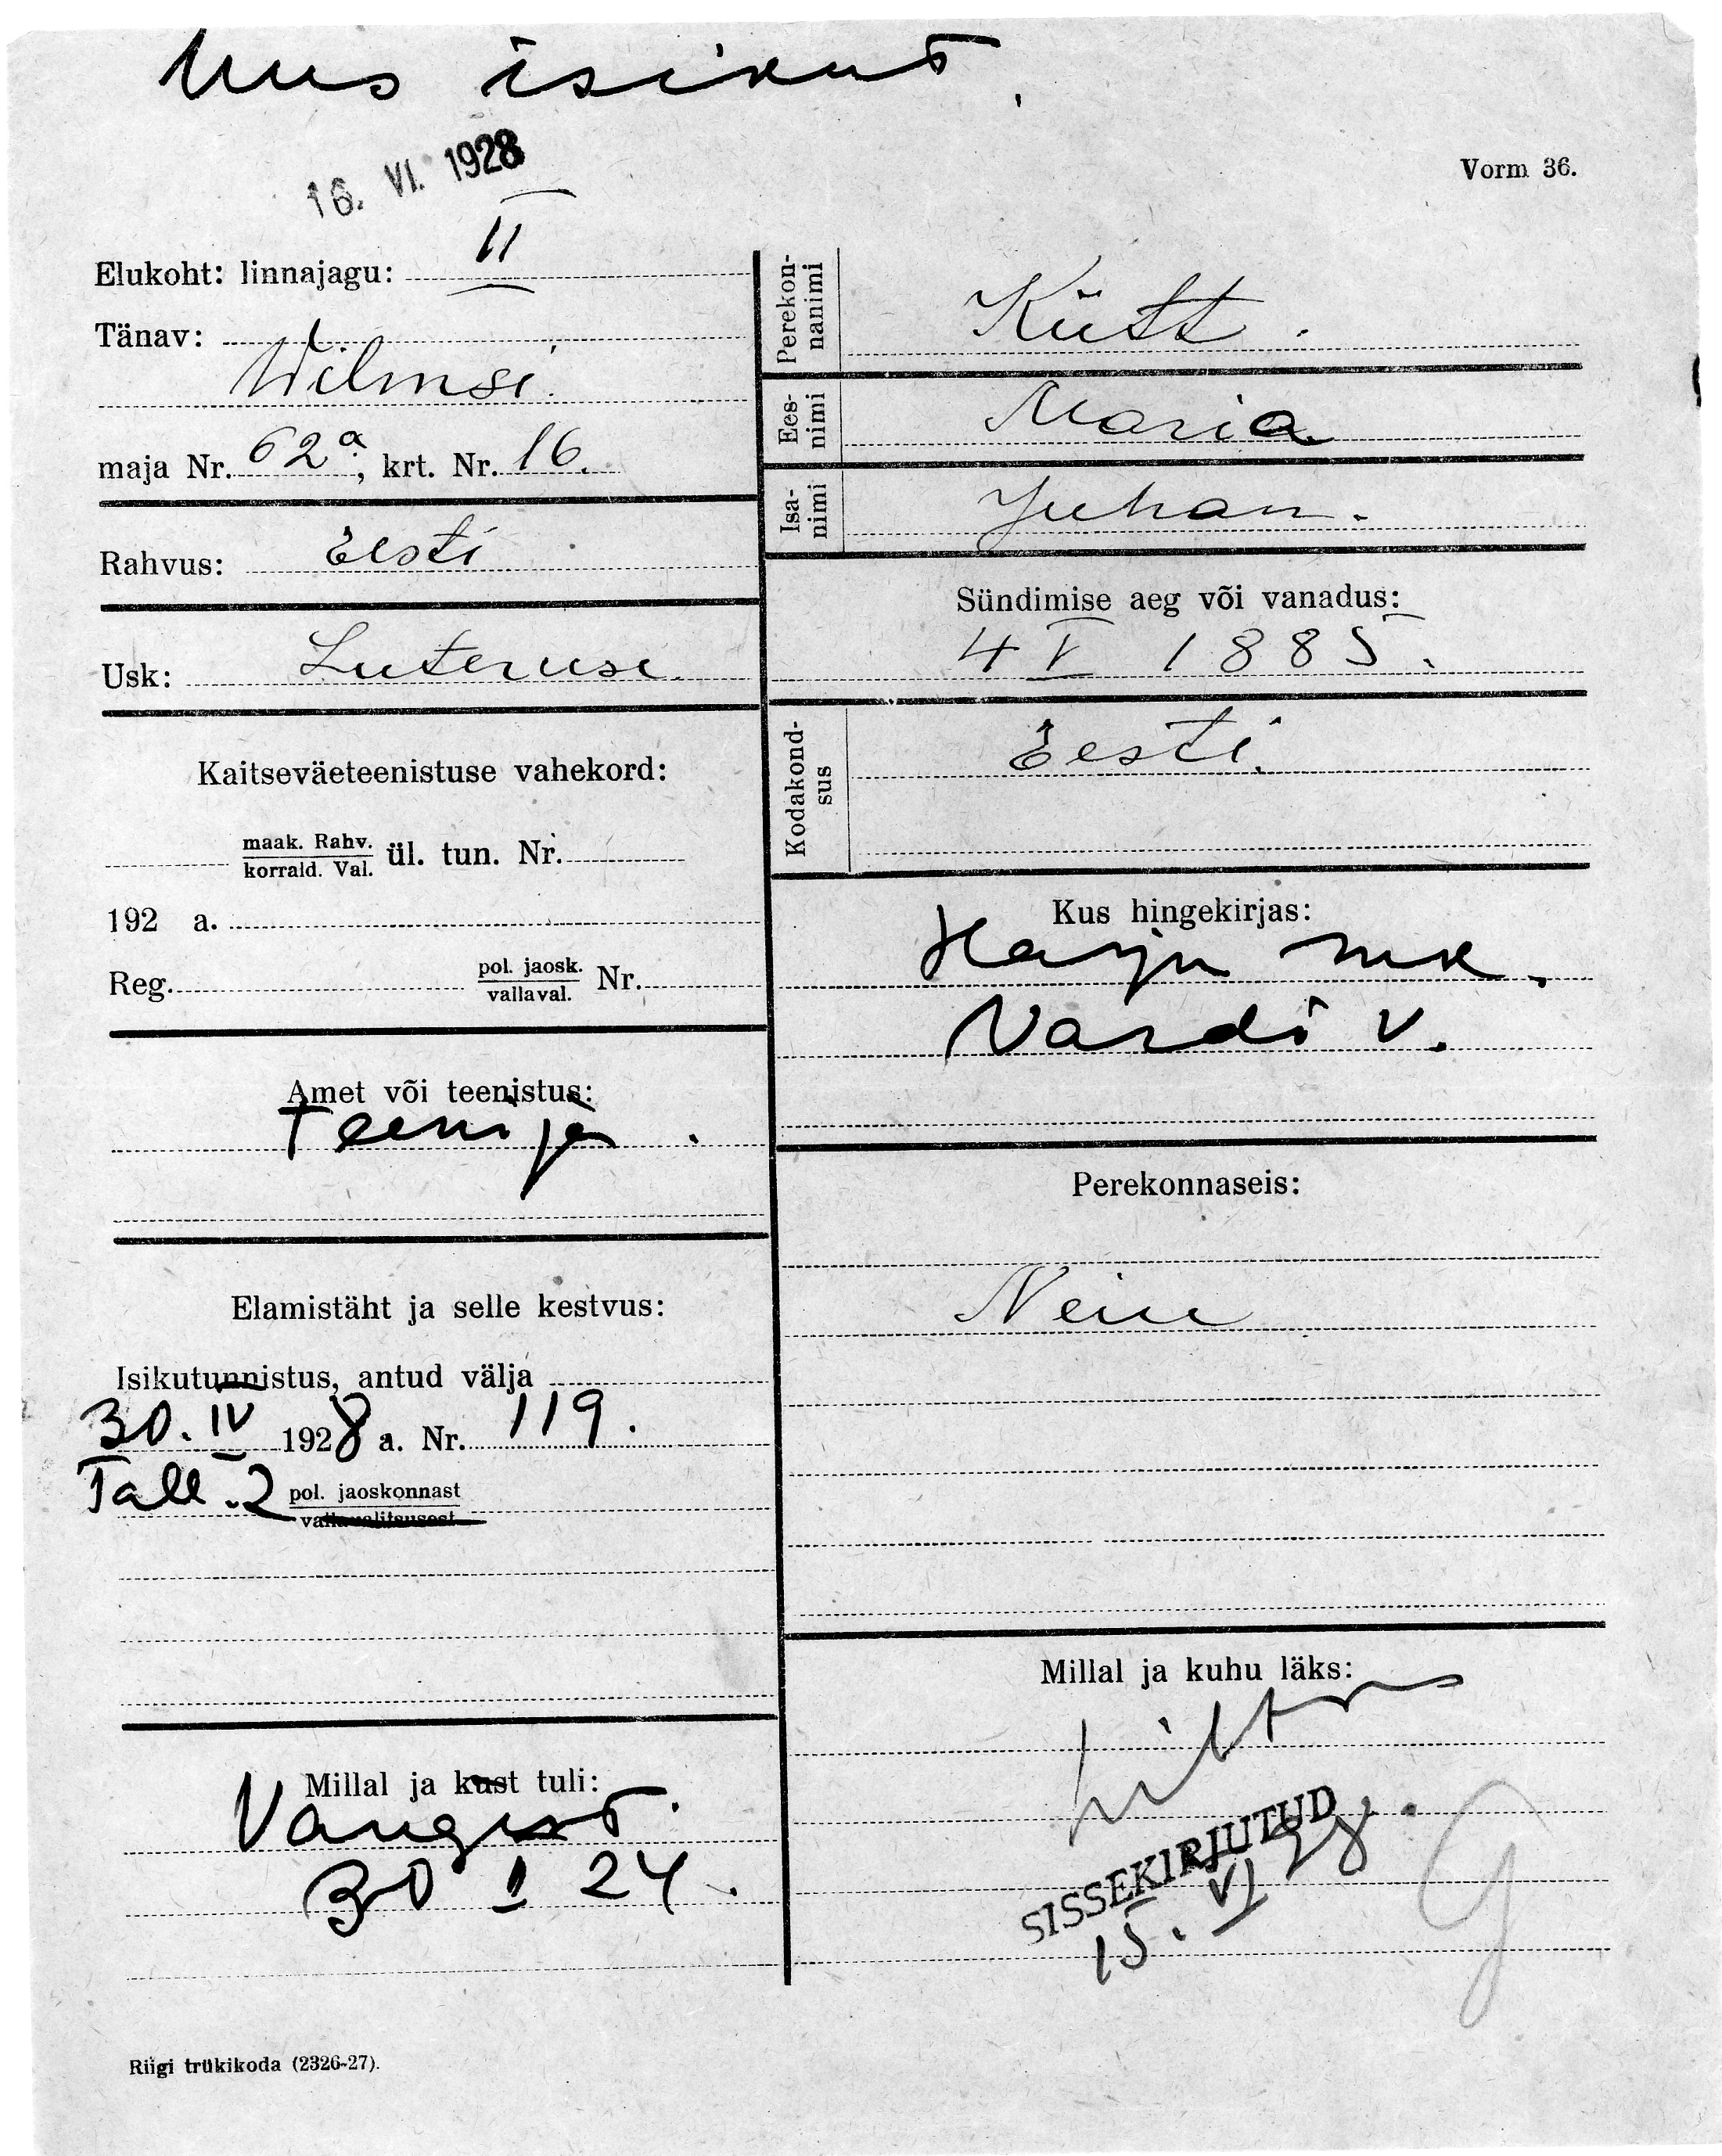 Uus isikut.
16. VI. 1928
Vorm 36.
Elukoht: linnajagu: II
Tänav:
Wilmsi
maja Nr. 62a, krt. Nr. 16.
Rahvus: Eesti
Usk: Luteruse
Kaitseväeteenistuse vahekord:
maak. Rahv.
korrald. Val. ül. tun. Nr.
192 a.
Reg. pol. jaosk.
vallaval. Nr.
Amet või teenistus:
Teenija.
Elamistäht ja selle kestvus:
Isikutunnistus, antud välja
30. IV 1928 a. Nr. 119.
Tall. 2 pol. jaoskonnast
vallavalitsusest
Millal ja kust tuli:
30 I 24.
Perekon-
nanimi
Kütt.
Ees-
nimi
Maria
Isa-
nimi
Juhan.
Sündimise aeg või vanadus:
4 V 1885.
Kodakond-
sus
Eesti.
Kus hingekirjas:
Harju mk.
Vardi v.
Perekonnaseis:
Neiu
Millal ja kuhu läks:
SISSEKIRJUTUD
15. VI 28.
Riigi trükikoda (2326-27).